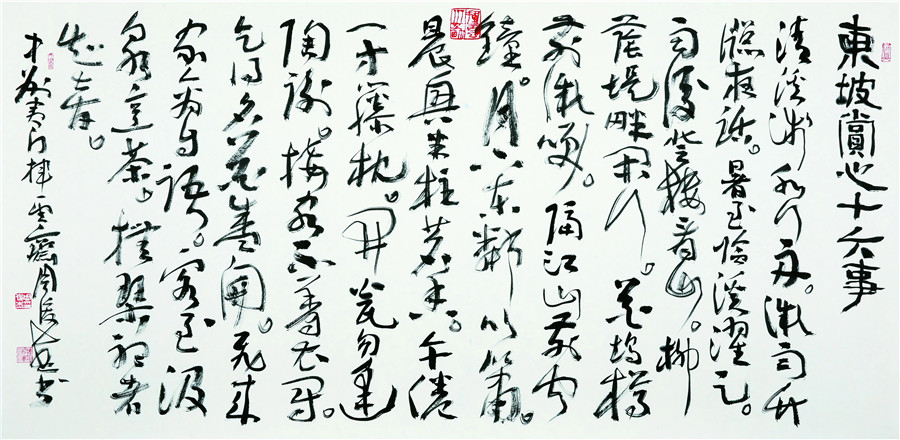 東坡賞心十六事
清溪淺水行舟。微雨竹
窗夜話。暑至臨溪濯足。
雨後登樓看山。柳
蔭堤畔閒行。花塢樽
前微笑。隔江山寺聞
鐘。月下東鄰吹簫。
晨興半柱茗香。午倦
一方藤枕。開甕勿逢
陶謝。接客不着衣冠。
乞得名花盛開。飛來
家禽自語。客至汲
泉烹茶。撫琴聽者
知音。
揮雲齋周俊杰書